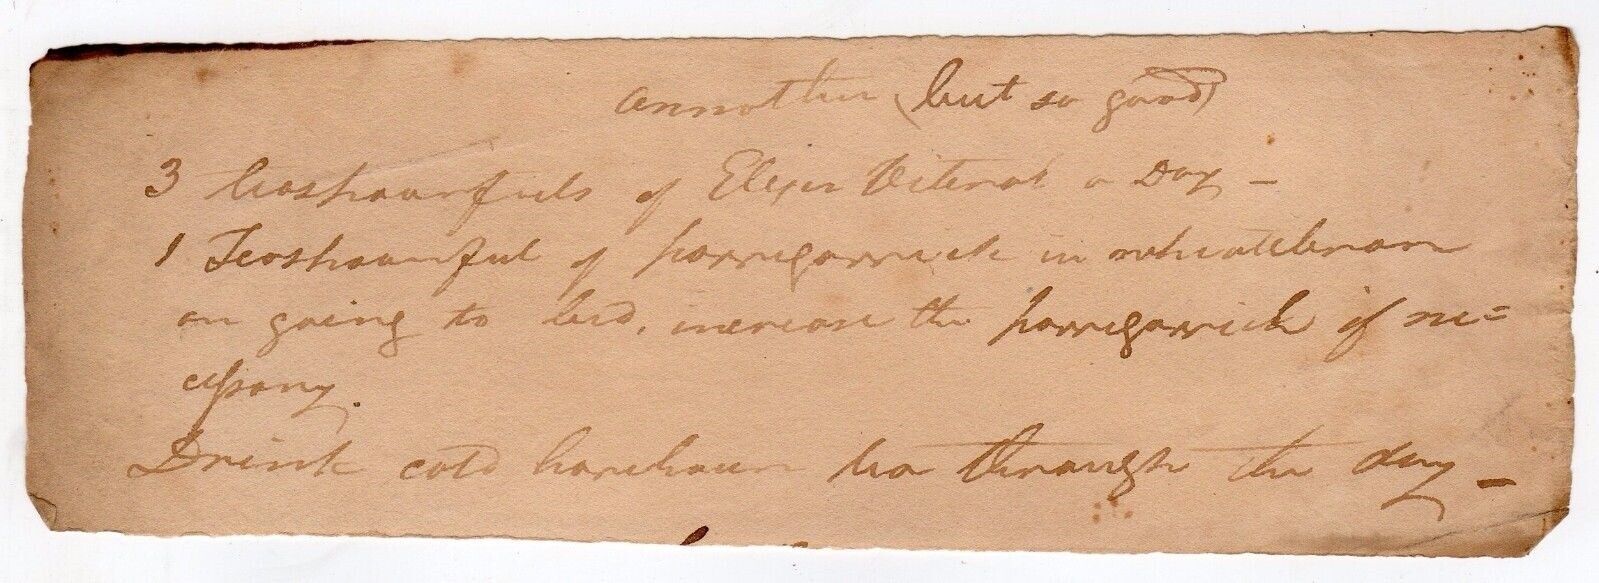 annother (but so good)
3 teaspoonfuls of Elixir Vitriol a Day –
1 Teaspoonful of parrigorrick in wheatebran
on going to bed, increase the parrigorrick if ne=
cessary.
Drink cold horehoun tea through the day –